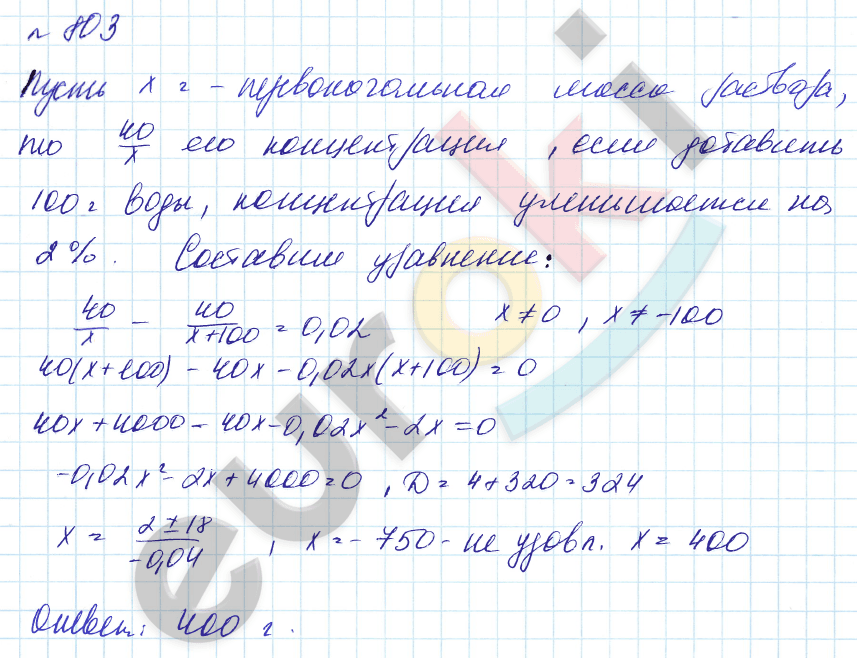 № 803
Пусть x г - первоначальная масса раствора,
то 40/x его концентрация, если добавить
100 г воды, концентрация уменьшается на
2%. Составим уравнение:
40/x - 40/(x+100) = 0,02 x ≠ 0, x ≠ -100
40(x+100) - 40x - 0,02x(x+100) = 0
40x + 4000 - 40x - 0,02x² - 2x = 0
-0,02x² - 2x + 4000 = 0, D = 4 + 320 = 324
x = (2 ± 18)/(-0,04), x = -750 - не удовл. x = 400
Ответ: 400 г.
euroki